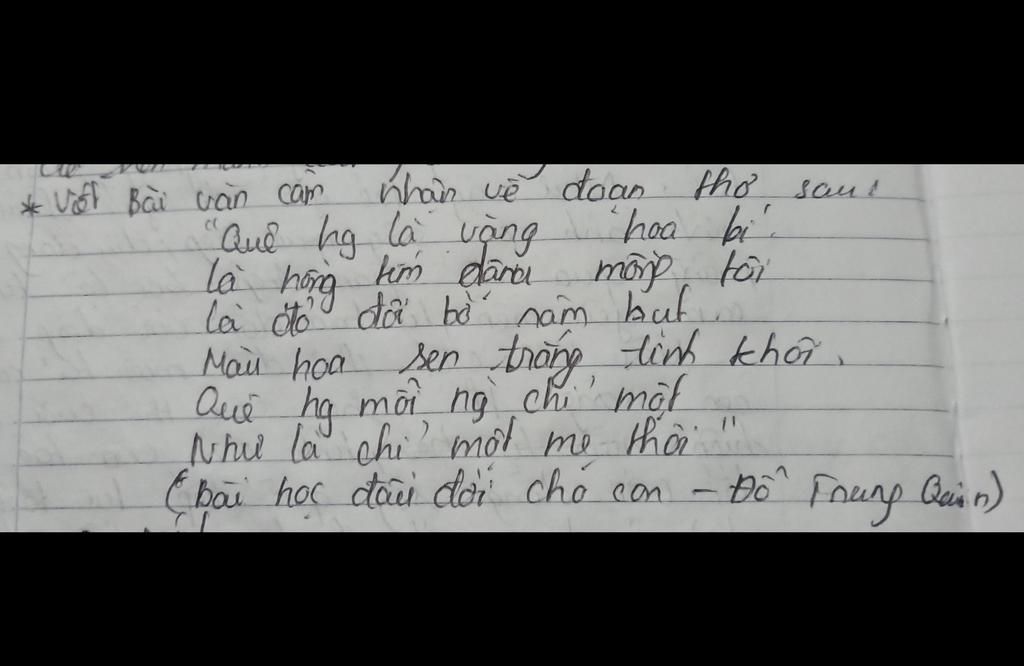 * Viết Bài văn cảm nhận về đoạn thơ sau:
"Quê hg là vàng hoa bí
là hồng tím dậu mồng tơi
là đỏ đôi bờ nâm but
Màu hoa sen trắng tinh khôi.
Quê hg mỗi ng chỉ một
Như là chỉ một mẹ thôi"
(Bài học đầu đời cho con - Đỗ Trung Quân)